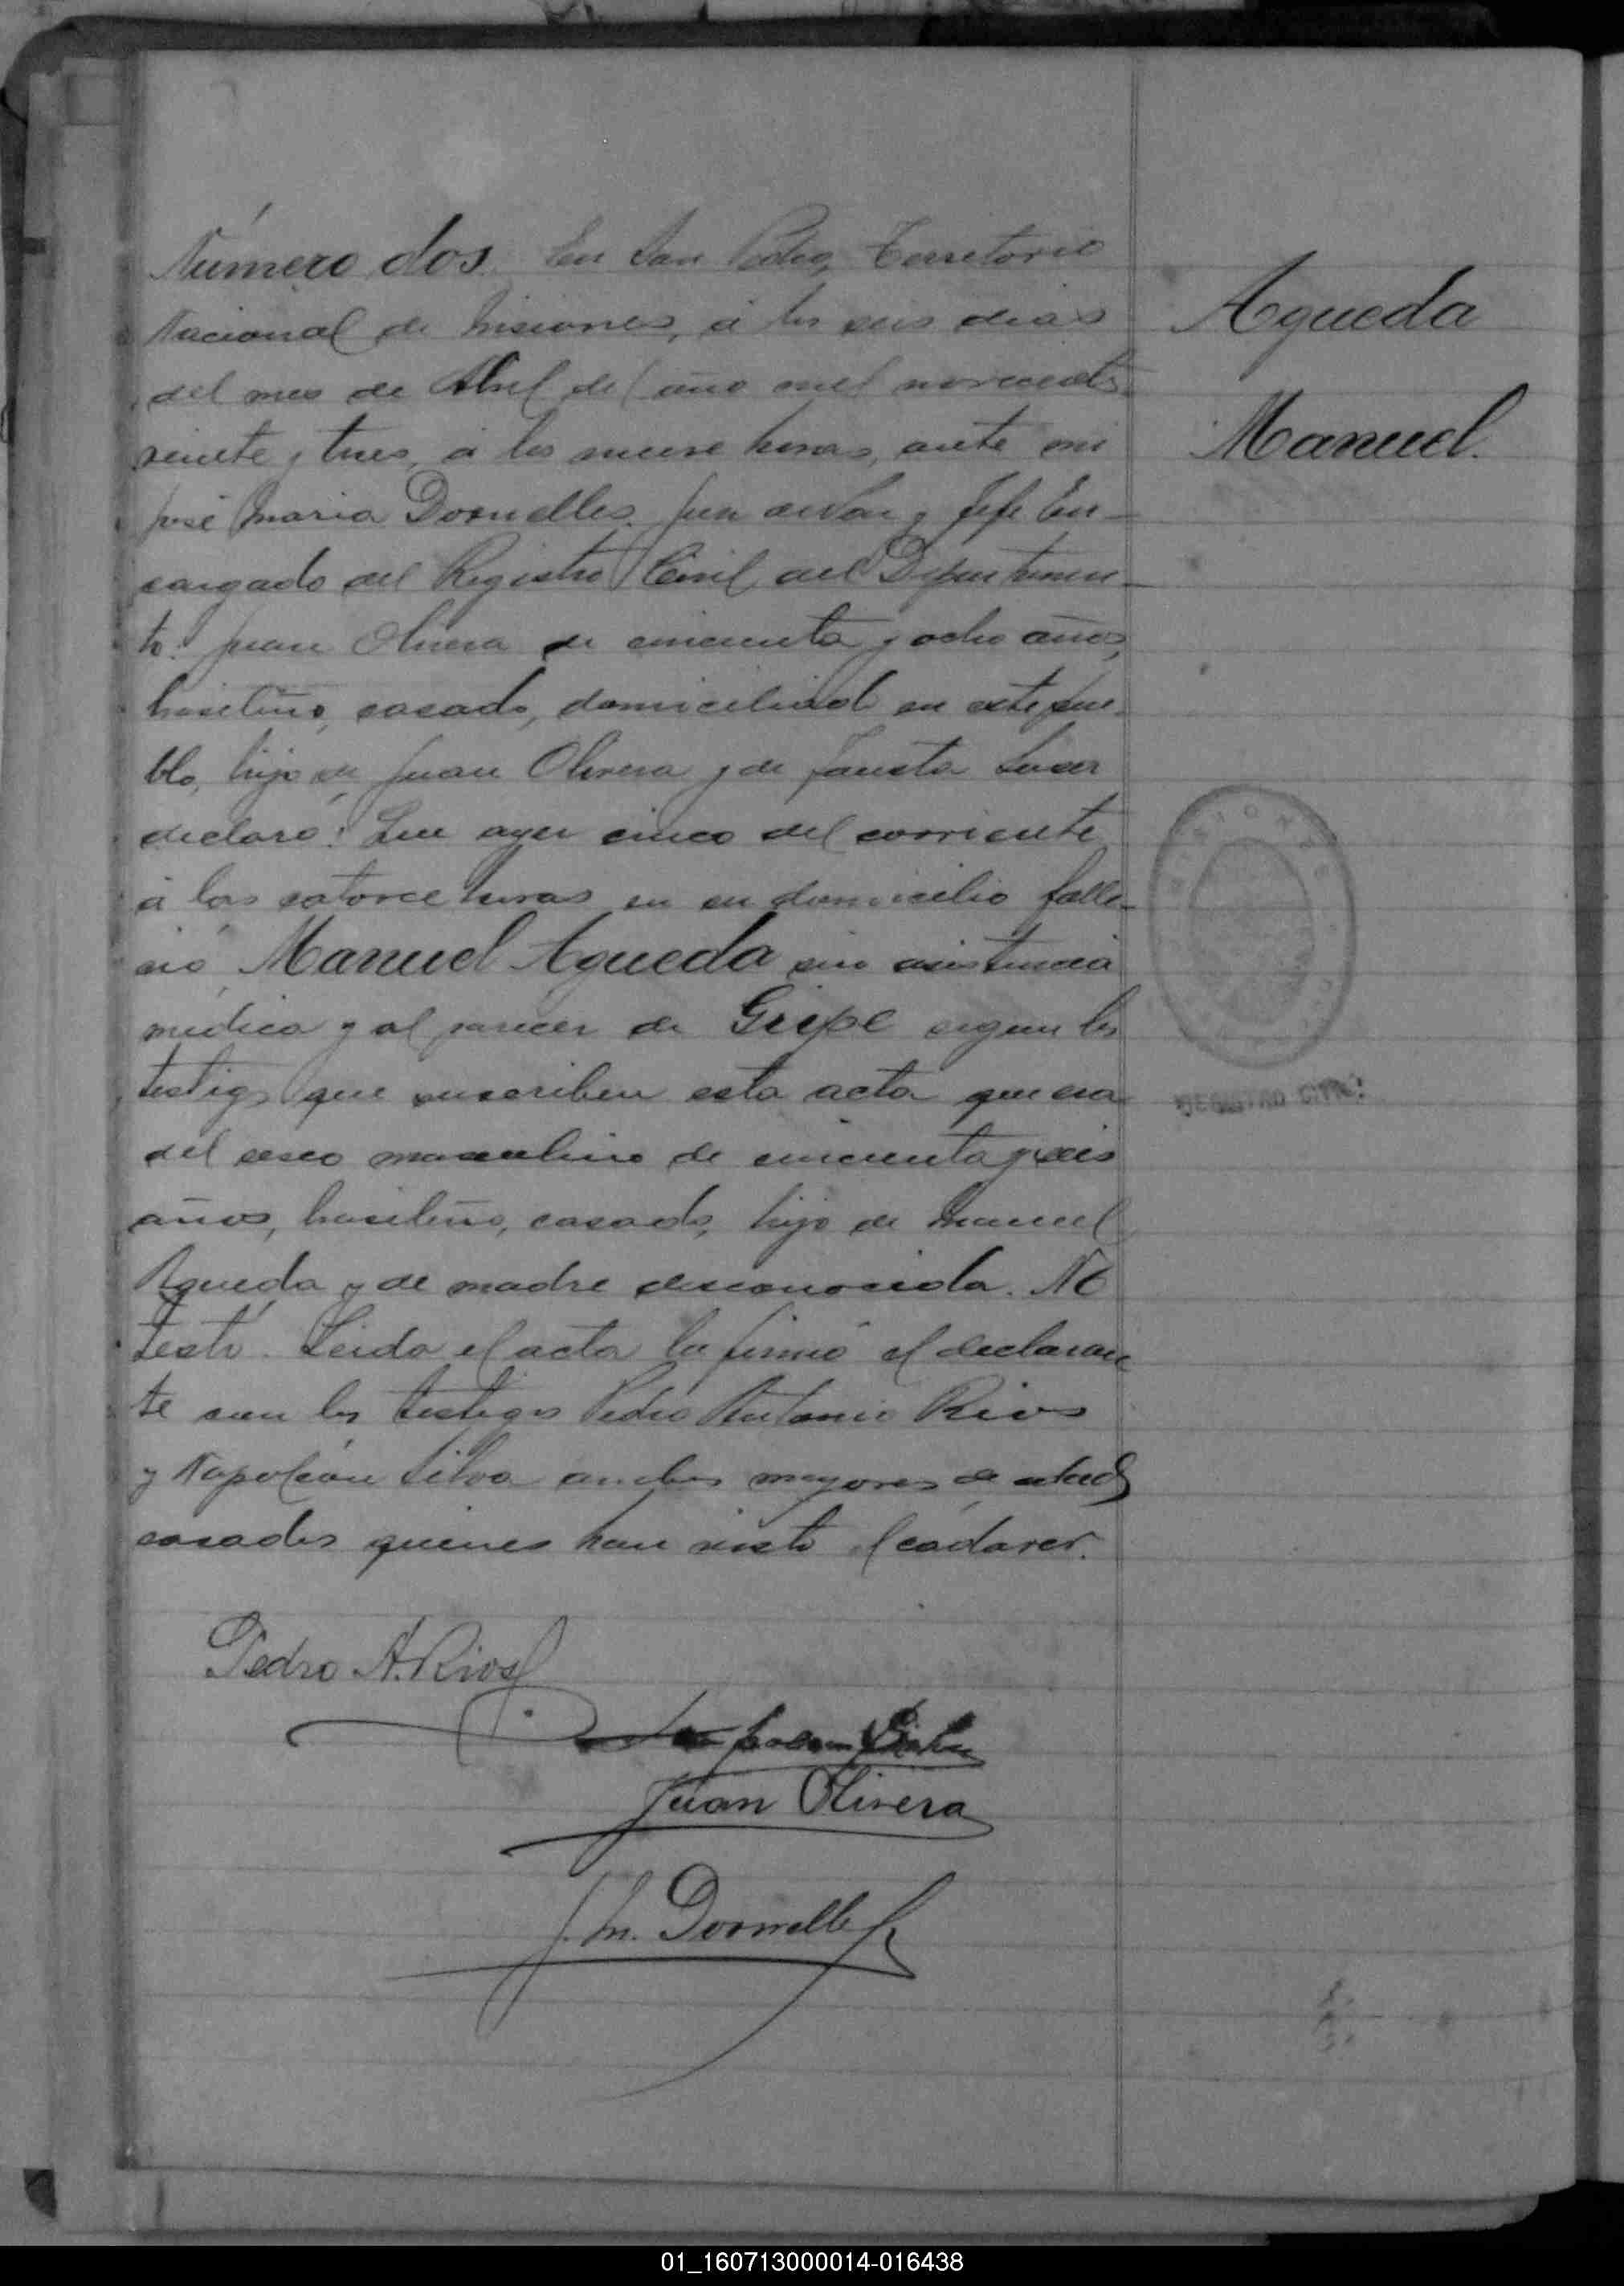 Número dos. En San Pedro, Territorio
Nacional de Misiones, á los seis dias
del mes de Abril del año mil novecientos
veinte y tres, á las nueve horas, ante mi
José Maria Dornelles. Juez de Paz y Jefe En-
cargado del Registro Civil del Departamen-
to: Juan Olivera de cincuenta y ocho años,
brasileño, casado, domiciliado en este pue-
blo, hijo de Juan Olivera y de Fausta
declaró: Que ayer cinco del corriente
á las catorce horas en su domicilio falle-
ció Manuel Agueda sin asistencia
médica y al parecer de Gripe segun los
testigos que suscriben esta acta que era
del sexo masculino de cincuenta y seis
años, brasileño, casado, hijo de Manuel
Agueda y de madre desconocida. No
testó. Leida el acta la firmó el declaran
te con los testigos Pedro Antonio Rios
y Napoleón Silva ambos mayores de edad
casados quienes han visto el cadaver.
Agueda
Manuel.
REGISTRO CIVIL
Pedro A. Rios
Napoleon Silva
Juan Olivera
J. M. Dornelles
01_160713000014-016438